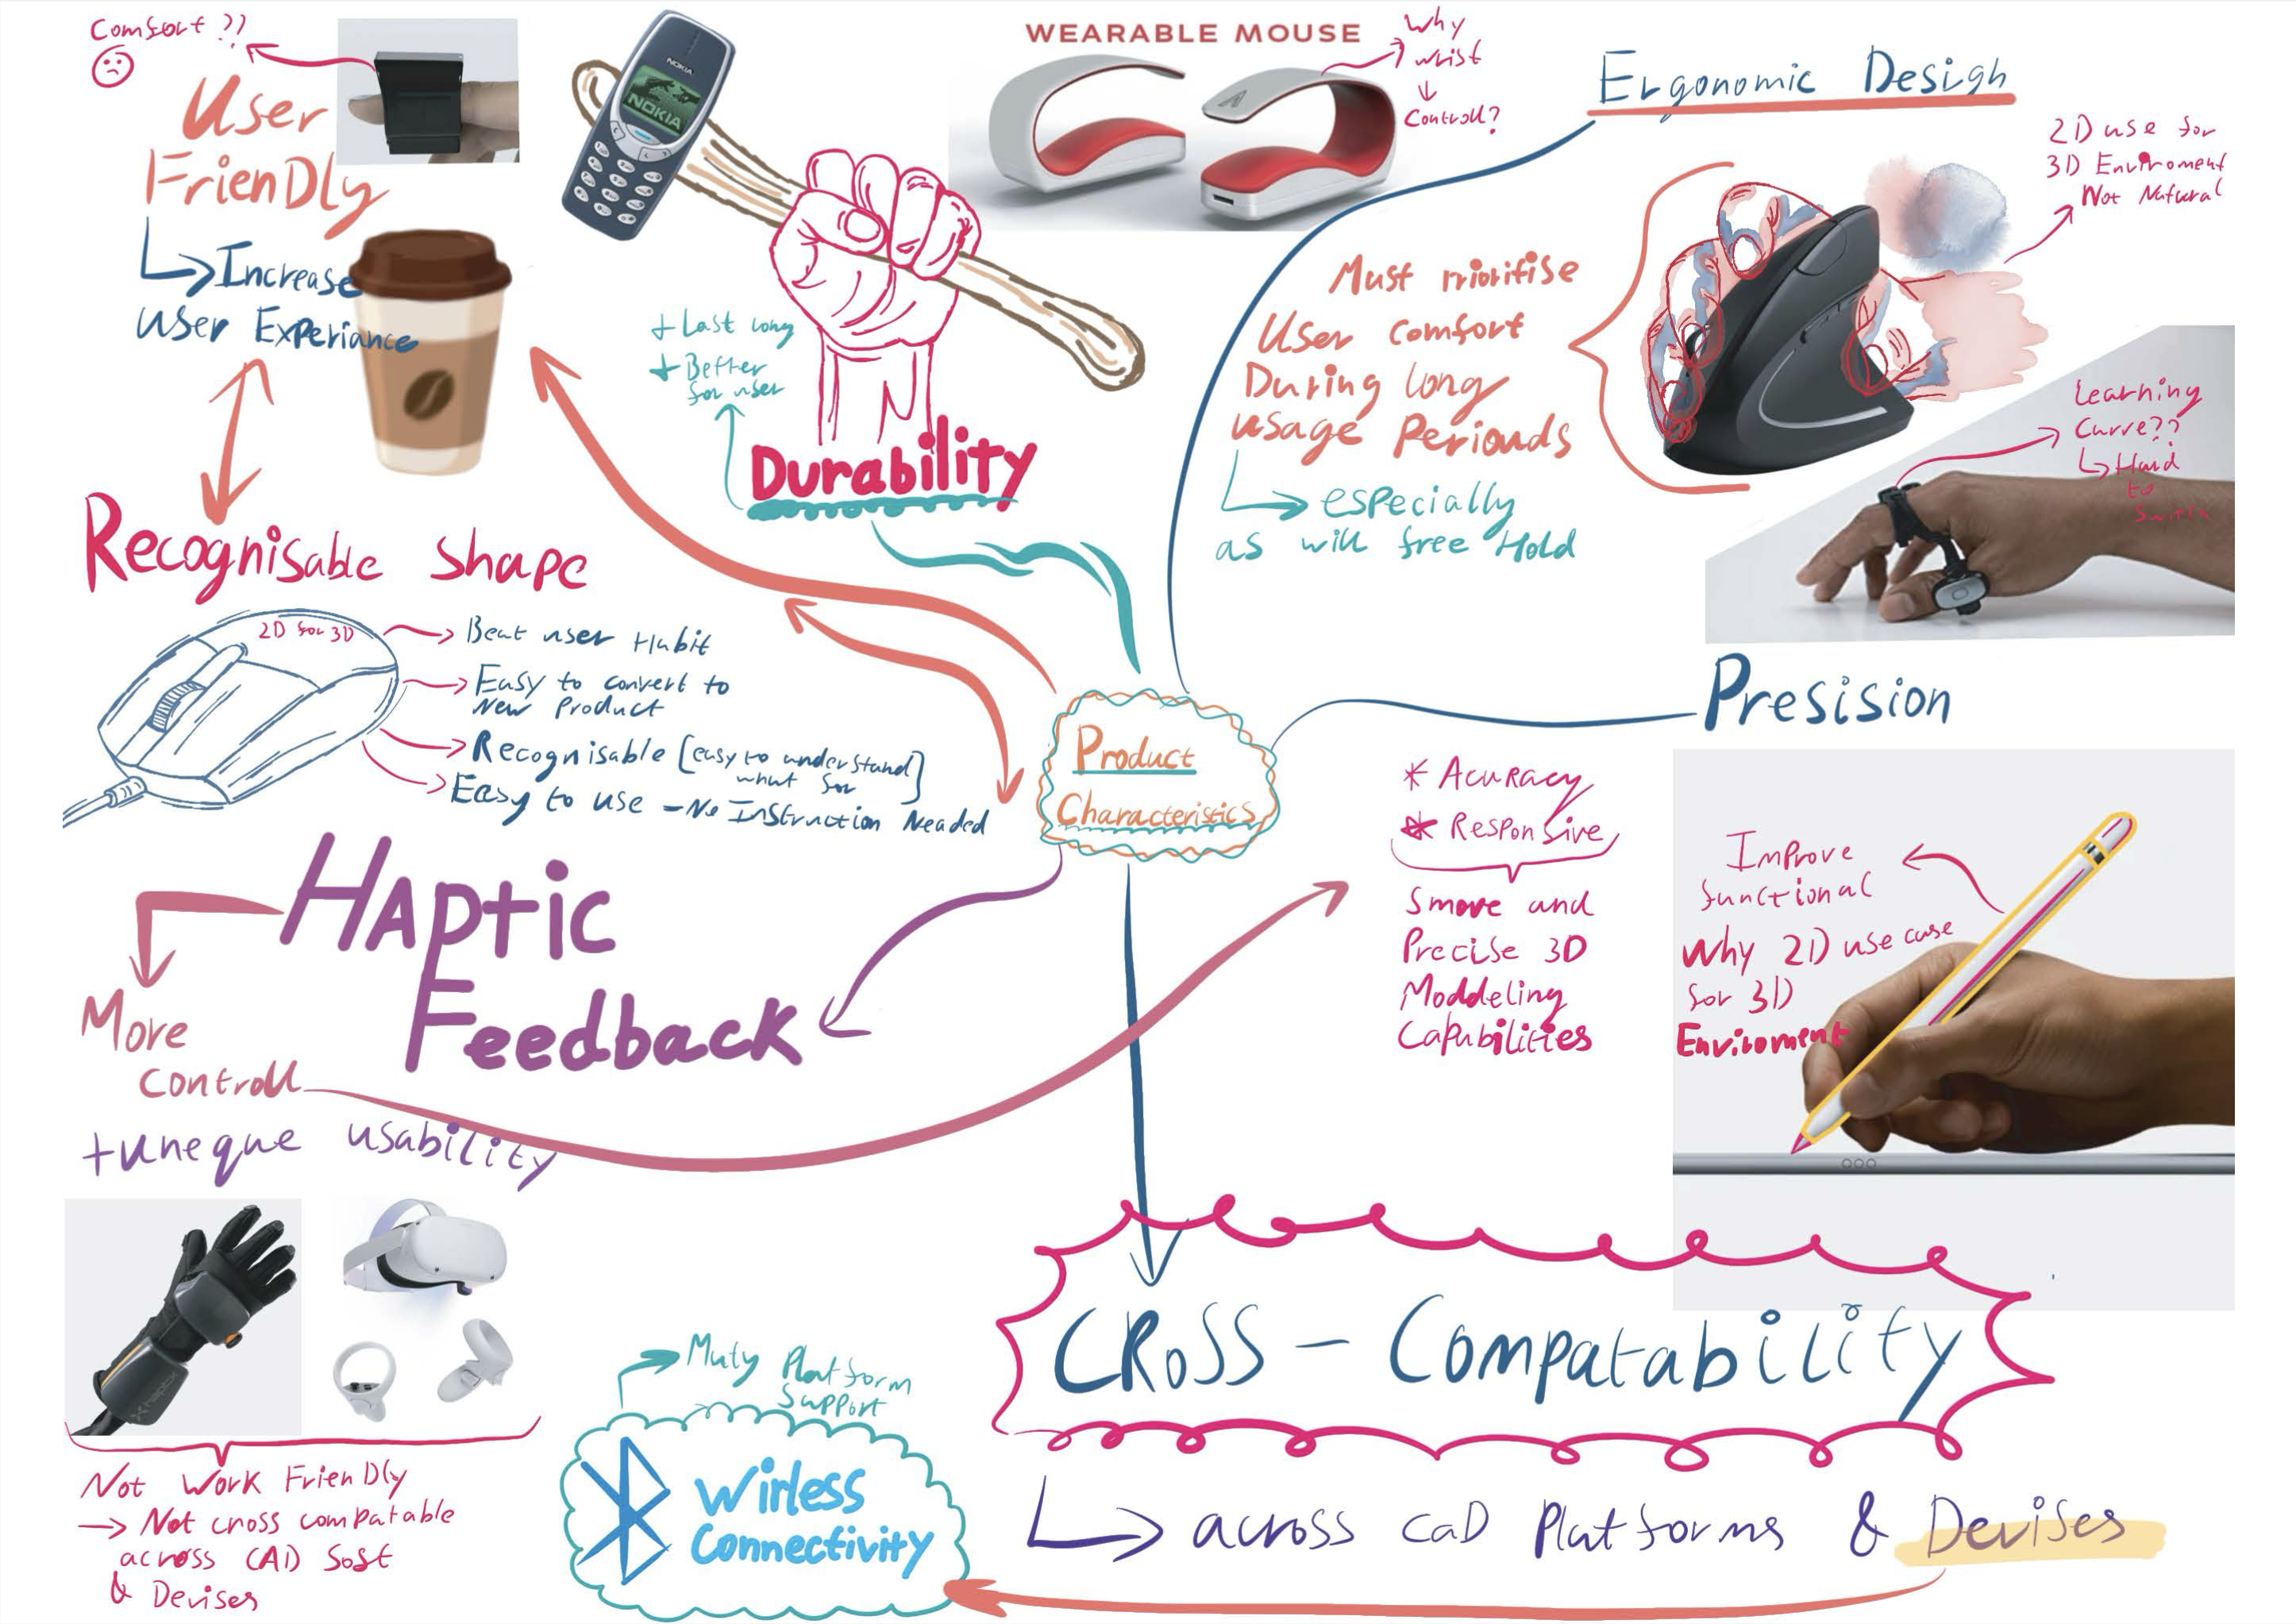 Comfort ??
User
FrienDly
Increase
User Experiance
NOKIA
NOKIA
+ Last long
+ Better
for user
Durability
WEARABLE MOUSE
Why
wrist
Controll?
Ergonomic Design
2D use for
3D Enviroment
Not Natural
Must Prioritise
User Comfort
During long
usage Periouds
especially
as will free Hold
Learning
Curve??
Hard
to
Switch
Recognisable shape
2D for 3D
Beat user Habit
Easy to convert to
New Product
Recognisable [easy to understand
what for]
Easy to use - No Instruction Needed
Product
Characteristics
Presision
* Acuracy
* Responsive
Smove and
Precise 3D
Moddeling
Capabilities
Improve
functional
Why 2D use case
for 3D
Enviroment
Haptic
Feedback
More
Controll
+ uneque usability
Not Work FrienDly
Not cross compatable
across CAD Soft
& Devises
Muty Platform
Support
Wirless
Connectivity
CRoSS - Compatability
across CaD Platforms & Devises